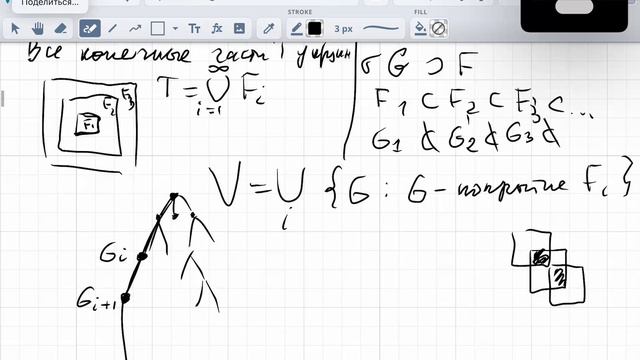 Поделиться...
STROKE
FILL
3 px
Все конечные части
T = ⋃_{i=1}^{∞} F_i
F1 F2 F3
σ G ⊃ F
F1 ⊂ F2 ⊂ F3 ⊂ ...
G1 ⊄ G2 ⊄ G3 ⊄
V = ⋃_i { G : G - покрытие F_i }
G_i
G_{i+1}